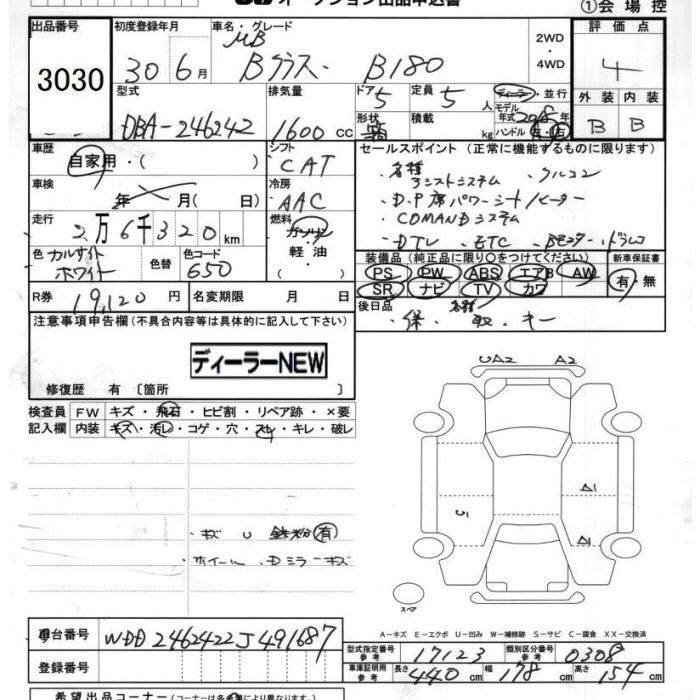 オークション出品申込書
①会場控
出品番号 3030
初度登録年月 30年6月
車名・グレード MB Bクラス B180
2WD・4WD
評価点 4
外装 B 内装 B
型式 DBA-246242
排気量 1600cc
ドア 5 形状
定員 5人 積載 kg
ディーラー・並行
モデル年式 2018年
ハンドル 左・右
車歴 自家用・( )
シフト CAT
車検 年 月(日)
冷房 AAC
走行 2万6千320km
燃料 ガソリン・軽油
色 カルサイトホワイト 色替 色コード 650
R券 19,120円 名変期限 月 日
セールスポイント(正常に機能するものに限ります)
・各種アシストシステム ・クルコン
・D.P席パワーシート/ヒーター
・COMANDシステム
・DTV ・ETC ・Bモニター ・ドラレコ
装備品(純正品に限り○をつけてください) 新車保証書
PS PW ABS エアB AW
SR ナビ TV カワ 有・無
後日品 各種
・保 ・取 ・キー
注意事項申告欄(不具合内容等は具体的に記入して下さい)
ディーラーNEW
修復歴 有 〔箇所
検査員記入欄
FW キズ・飛石・ヒビ割・リペア跡・×要
内装 キズ・汚レ・コゲ・穴・スレ・キレ・破レ
UA2 A2
A1
A1
・キズ U 鉄粉(有)
・ホイール ・Dミラーキズ
スペア
A-キズ E-エクボ U-凹み W-補修跡 S-サビ C-腐食 XX-交換済
車台番号 WDD2462422J491687
登録番号
型式指定番号参考 17123 類別区分番号参考 0308
車庫証明用参考 長さ 440cm 幅 178cm 高さ 154cm
希望出品コーナー(コーナーは各会場により異なります)